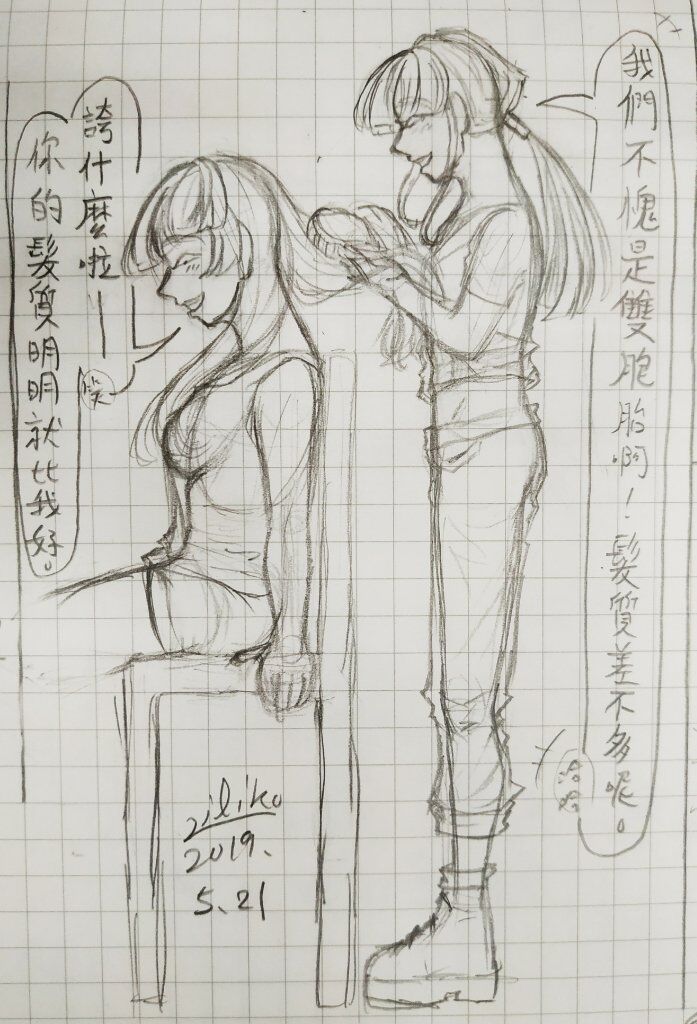 我們不愧是雙胞胎啊！髮質差不多呢。
誇什麼啦—
你的髮質明明就比我好。
笑
ziliko
2019.
5.21